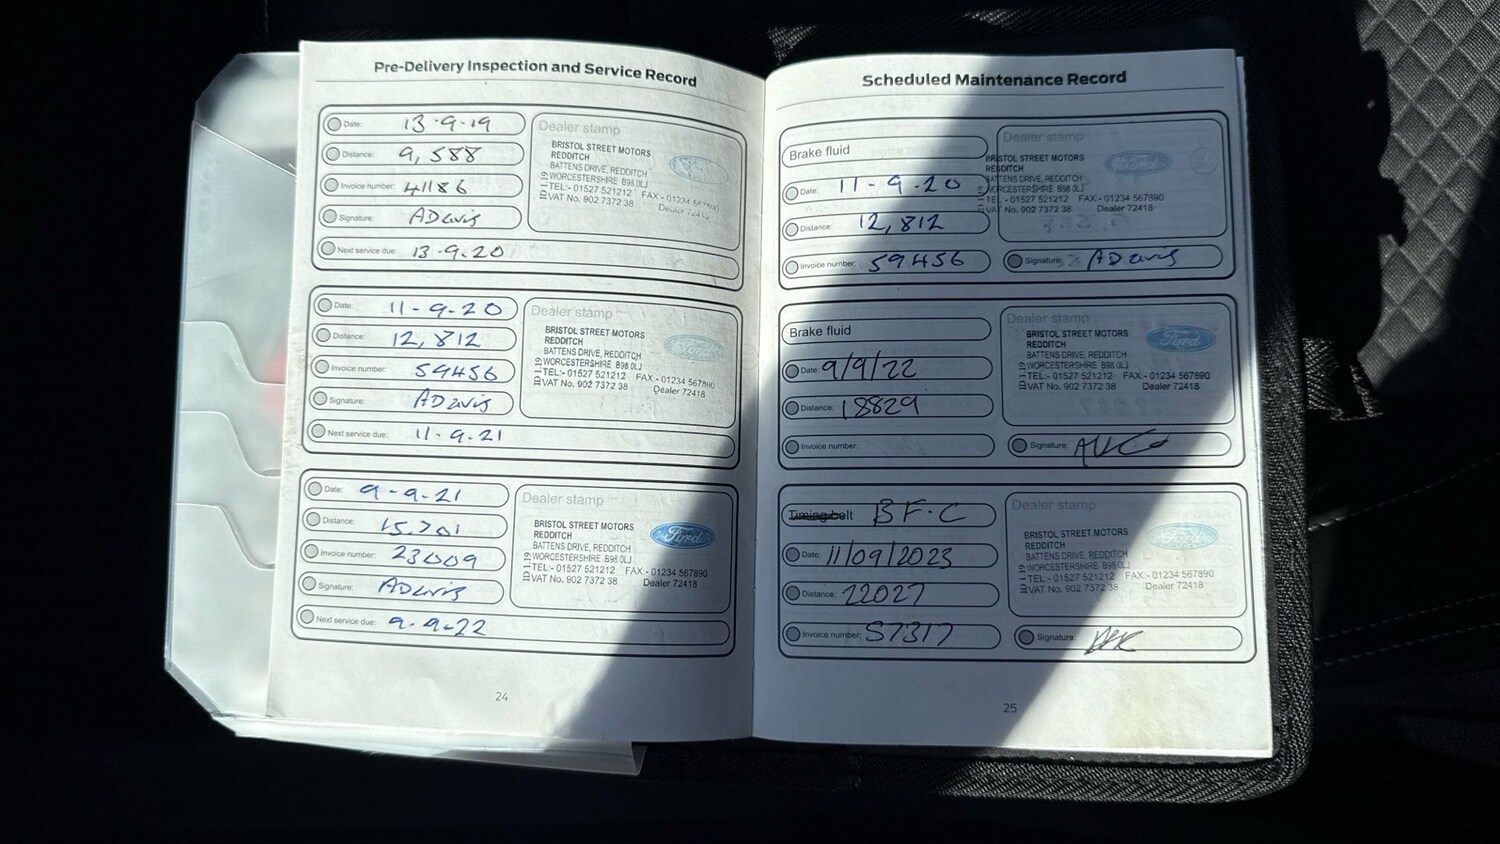 Pre-Delivery Inspection and Service Record
Date: 13-9-19
Distance: 9,588
Invoice number: 41186
Signature: ADavis
Next service due: 13.9.20
Dealer stamp
BRISTOL STREET MOTORS
REDDITCH
BATTENS DRIVE, REDDITCH
WORCESTERSHIRE B98 0LJ
TEL:- 01527 521212 FAX:- 01234 567890
VAT No. 902 7372 38 Dealer 72418
ID 1.19
Date: 11-9-20
Distance: 12,812
Invoice number: 59456
Signature: ADavis
Next service due: 11-9.21
Dealer stamp
BRISTOL STREET MOTORS
REDDITCH
BATTENS DRIVE, REDDITCH
WORCESTERSHIRE B98 0LJ
TEL:- 01527 521212 FAX:- 01234 567890
VAT No. 902 7372 38 Dealer 72418
ID 1.19
Ford
Date: 9-9-21
Distance: 15.701
Invoice number: 23009
Signature: ADavis
Next service due: 9-9-22
Dealer stamp
BRISTOL STREET MOTORS
REDDITCH
BATTENS DRIVE, REDDITCH
WORCESTERSHIRE B98 0LJ
TEL:- 01527 521212 FAX:- 01234 567890
VAT No. 902 7372 38 Dealer 72418
ID 1.19
Ford
24
Scheduled Maintenance Record
Brake fluid
Date: 11-9.20
Distance: 12,812
Invoice number: 59456
Dealer stamp
BRISTOL STREET MOTORS
REDDITCH
BATTENS DRIVE, REDDITCH
WORCESTERSHIRE B98 0LJ
TEL:- 01527 521212 FAX:- 01234 567890
VAT No. 902 7372 38 Dealer 72418
Ford
Signature: ADavis
Brake fluid
Date: 9/9/22
Distance: 18829
Invoice number:
Dealer stamp
BRISTOL STREET MOTORS
REDDITCH
BATTENS DRIVE, REDDITCH
WORCESTERSHIRE B98 0LJ
TEL:- 01527 521212 FAX:- 01234 567890
VAT No. 902 7372 38 Dealer 72418
ID 1.19
Ford
Signature:
Timing belt BF.C
Date: 11/09/2023
Distance: 22027
Invoice number: 57317
Dealer stamp
BRISTOL STREET MOTORS
REDDITCH
BATTENS DRIVE, REDDITCH
WORCESTERSHIRE B98 0LJ
TEL:- 01527 521212 FAX:- 01234 567890
VAT No. 902 7372 38 Dealer 72418
ID 1.19
Ford
Signature:
25